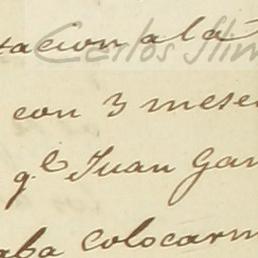 tacion a la
Carlos Slim
con 3 mese
q.e Juan Gar
aba colocarm